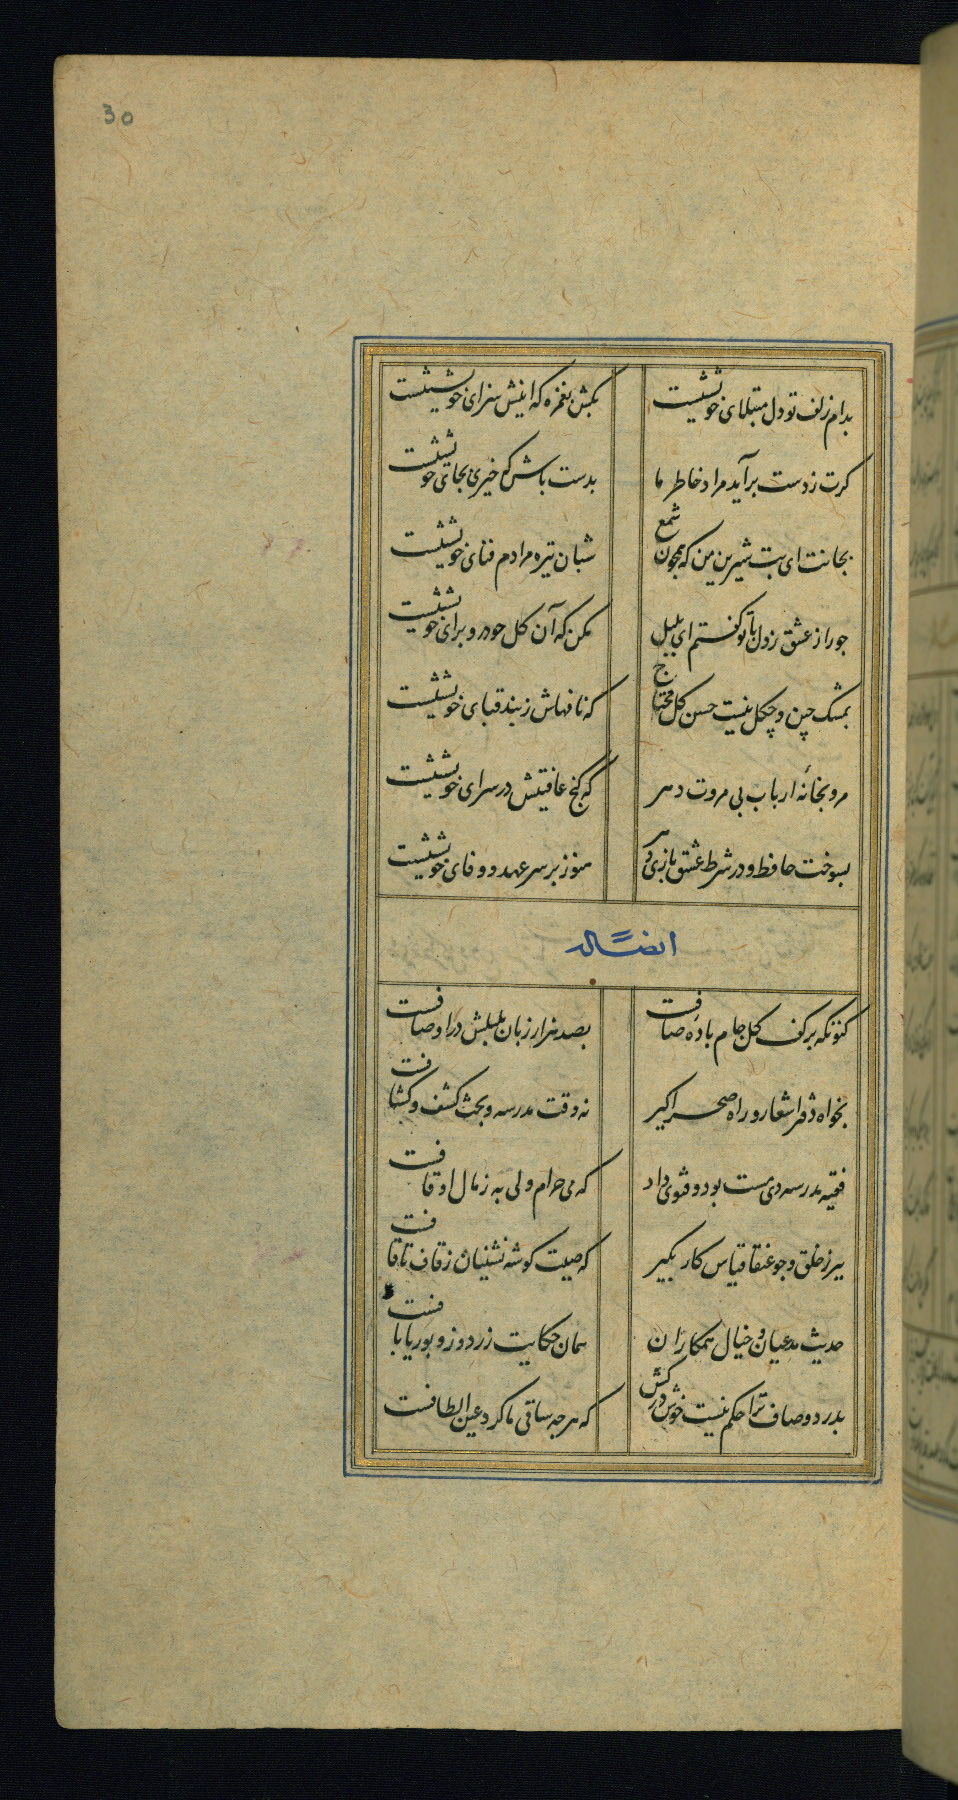 30
بدام زلف تو دل مبتلای خویشتنست
بکش بغمزه که اینش سزای خویشتنست
کرت زدست برآید مراد خاطر ما
بدست باش که خیری بجای خویشتنست
بجانت ای بت شیرین من که همچون شمع
شبان تیره مرادم فنای خویشتنست
جو راز عشق زدل با تو کفتم ای بلبل
مکن که آن کل خودرو برای خویشتنست
بمشک چین و چکل نیست حسن کل محتاج
که نافهاش زبند قبای خویشتنست
مرو بخانهٔ ارباب بی مروت دهر
که کنج عافیتش در سرای خویشتنست
بسوخت حافظ و در شرط عشق بازی
هنوز بر سر عهد و وفای خویشتنست
ایضاً له
کنونکه بر کف کل جام باده صافست
بصد هزار زبان بلبلش در اوصافست
بخواه دفتر اشعار و راه صحرا کیر
نه وقت مدرسه و بحث کشف و کشافست
فقیه مدرسه دی مست بود و فتوی داد
که می حرام ولی به زمال اوقافست
ببر زخلق و جو عنقا قیاس کار بکیر
که صیت کوشه نشینان زقاف تا قافست
حدیث مدعیان و خیال همکاران
همان حکایت زردوز و بوریابافست
بدرد و صاف ترا حکم نیست خوش درکش
که هرجه ساقی ما کرد عین الطافست